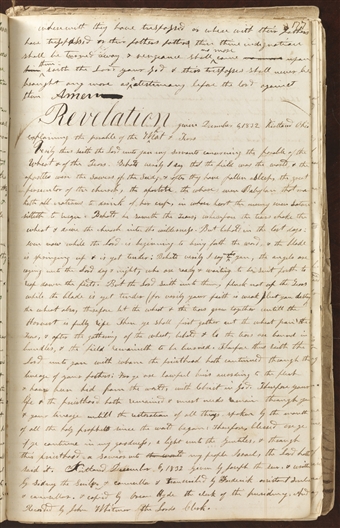 wherewith they have trespassed or wherewith their fathers
have trespassed or their fathers fathers then thine indignation
shall be turned away & vengeance shall no more come upon
them saith the Lord your God & their trespasses shall never be
brought any more as a testimony before the Lord against
them Amen
Revelation given December 6, 1832 Kirtland Ohio
explaining the parable of the Wheat & Tares
Verily thus saith the Lord unto you my servants concerning the parable of the
wheat & the Tares. Behold verily I say that the field was the world & the
apostles were the sowers of the seed, & after they have fallen asleep, the great
persecutor of the church, the apostate, the whore, even Babylon that maketh
all nations to drink of her cup, in whose heart the enemy even Satan
sitteth to reign. Behold he soweth the tares, wherefore the tares choke the
wheat & drive the church into the wilderness. But behold in the last days,
even now while the Lord is beginning to bring forth the word, & the blade
is springing up & is yet tender, Behold verily I say unto you, the angels are
crying unto the Lord day & night, who are ready & waiting to be sent forth to
reap down the fields. But the Lord saith unto them, pluck not up the tares
while the blade is yet tender (for verily your faith is weak) lest you destroy
the wheat also, therefore let the wheat & the tares grow together untill the
Harvest is fully ripe. Then ye shall first gather out the wheat from the
tares, & after the gathering of the wheat, behold & lo the tares are bound in
bundles, & the field remaineth to be burned. Therefore thus saith the
Lord unto you with whom the priesthood hath continued through the
lineage of your fathers, for ye are lawful heirs according to the flesh
& have been hid from the world with Christ in God. Therefore your
life & the priesthood hath remained & must needs remain through you
& your lineage untill the restoration of all things spoken by the mouth
of all the holy prophets since the world began. Therefore blessed are ye
if ye continue in my goodness, a light unto the Gentiles, & through
this priesthood, a saviour unto my people Israel, the Lord hath
said it. Kirtland December 6, 1832 Given by Joseph the seer, & written
by Sidney the scribe & councellor, & transcribed by Frederick assistant scribe
& councellor, & copied by Orson Hyde the clerk of the presidency. And
Recorded by John Whitmer the Lords Clerk.